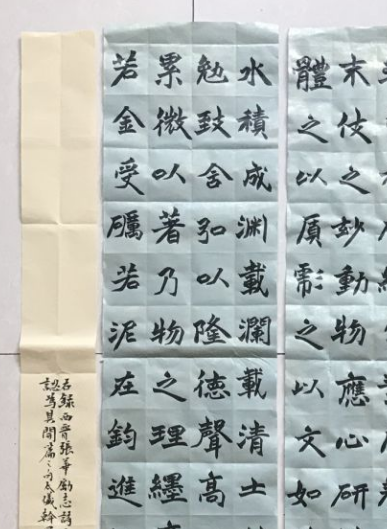 末伎之妙動物應心研
體之以質彪之以文如
水積成渊載瀾載清土
勉致含弘以隆德聲高
累微以著乃物之理纆
若金受礪若泥在鈞進
右録西晋張華勵志詩
認為其開篇之句大儀斡